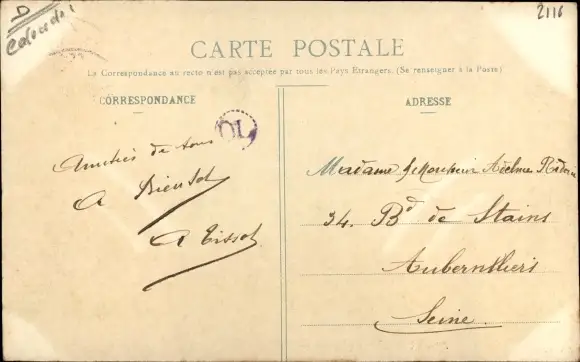 D
2116
CARTE POSTALE
La Correspondance au recto n'est pas acceptée par tous les Pays Etrangers. (Se renseigner à la Poste)
CORRESPONDANCE
OL
Amitiés de tous
A Bientôt
A Tissot
ADRESSE
Madame & Monsieur
34. Bd de Stains
Aubervilliers
Seine